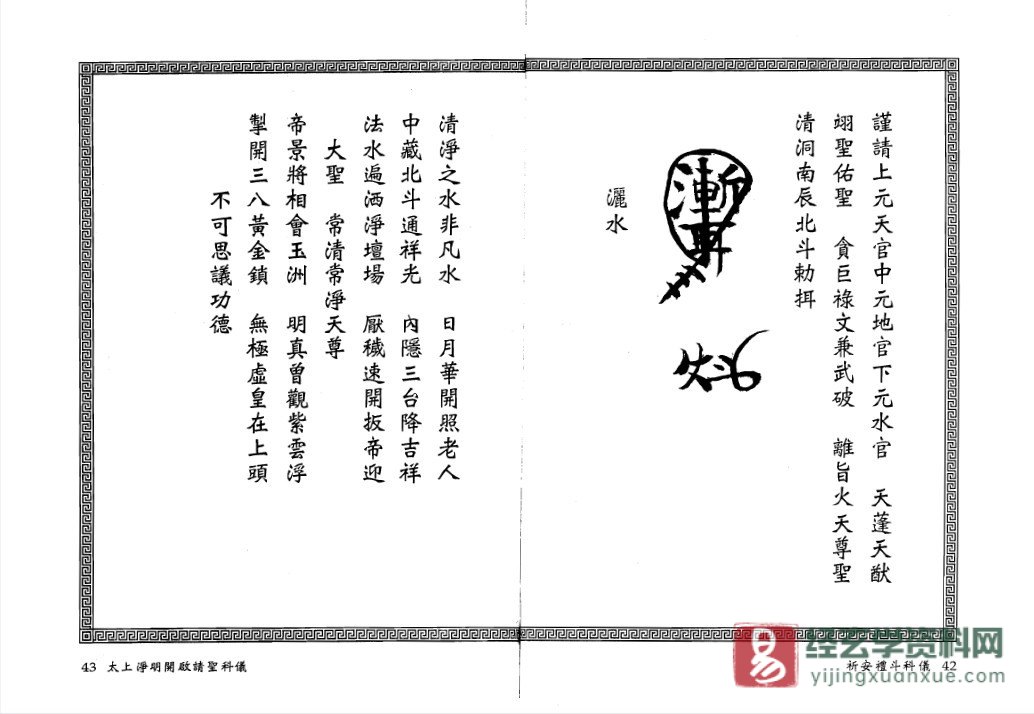 謹請上元天官中元地官下元水官　天蓬天猷
翊聖佑聖　貪巨祿文兼武破　離旨火天尊聖
清洞南辰北斗勅挕
灑水
清淨之水非凡水　日月華開照老人
中藏北斗通祥光　內隱三台降吉祥
法水遍洒淨壇場　厭穢速開扳帝迎
大聖　常清常淨天尊
帝景將相會玉洲　明真曾觀紫雲浮
掣開三八黃金鎖　無極虛皇在上頭
不可思議功德
祈安禮斗科儀 42
43 太上淨明開啟請聖科儀
易
经玄学资料网
yijingxuanxue.com